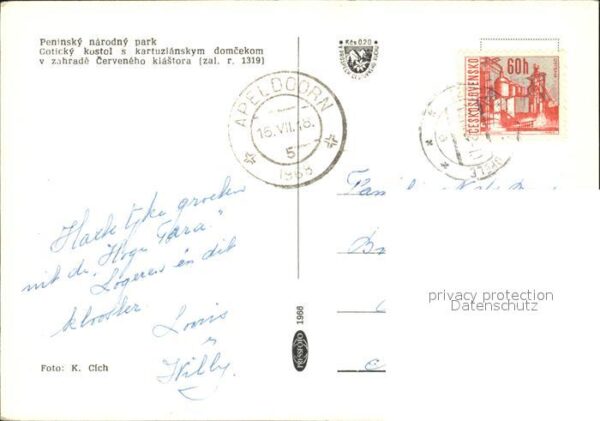 Peninský národný park
Gotický kostol s kartuziánskym domčekom
v záhrade Červeného kláštora (zal. r. 1319)
Kčs 0,20
60h
ČESKOSLOVENSKO
APELDOORN
16.VII.18.
5
1968
Hartelijke groeten
uit de "Hoge Tatra."
Logeren in dit
klooster.
Louis
en
Willy.
Familie
privacy protection
Datenschutz
PRESSFOTO
1968
Foto: K. Cích